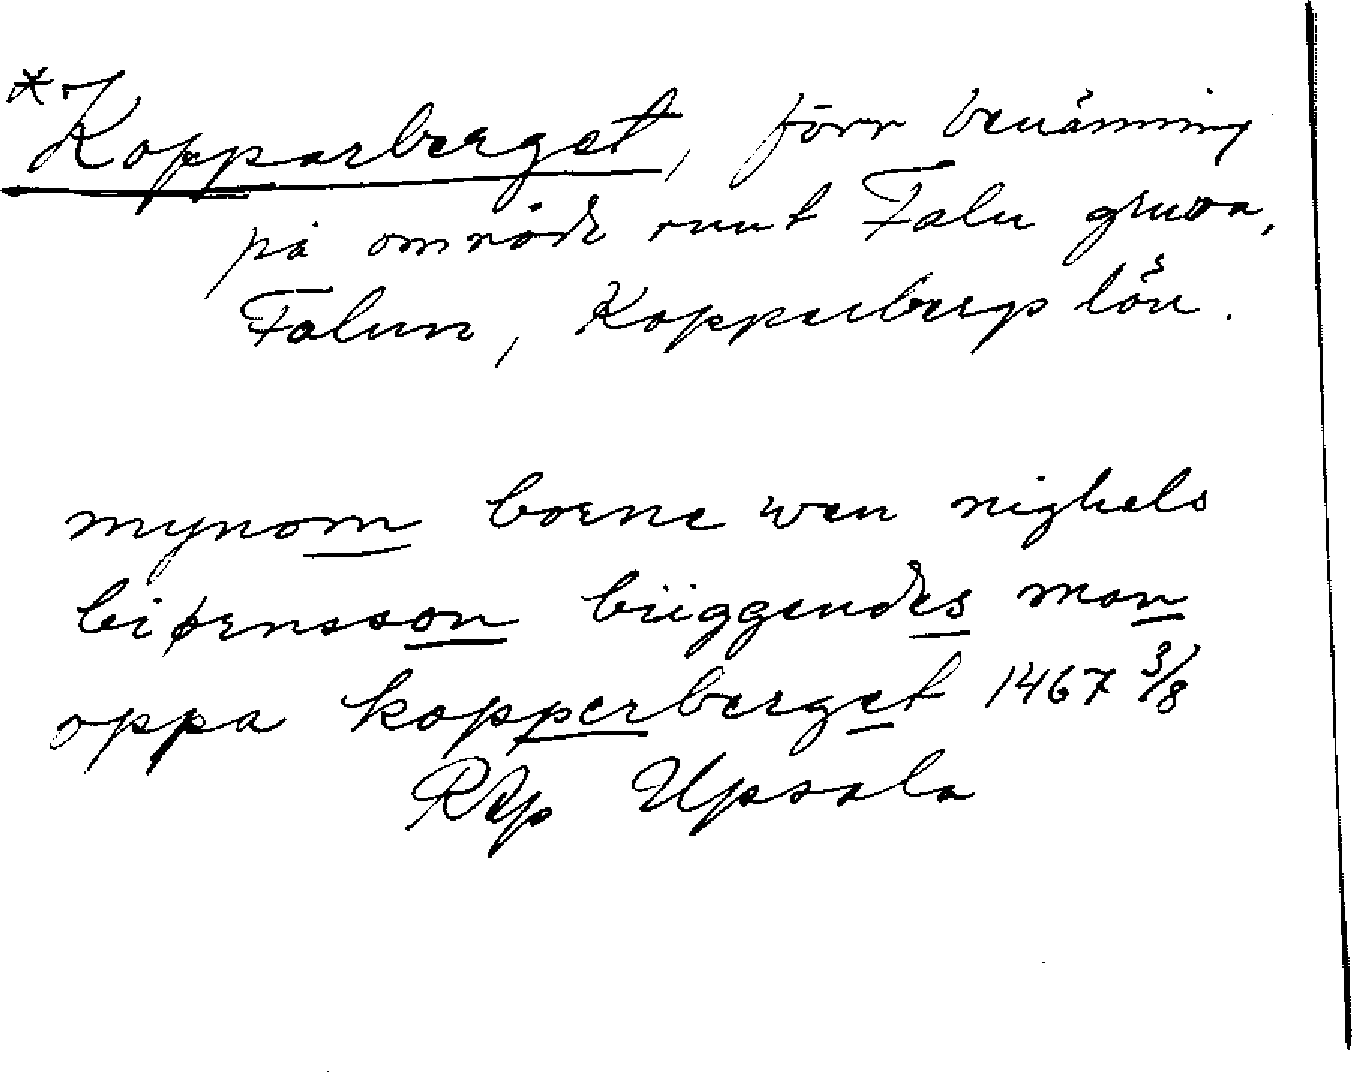 *Kopparberget, förr benämning
på område runt Falu gruva,
Falun, Kopparbergs län.
mynom borne wen nighels
biþernsson büggendes man
oppa kopperberget 1467 3/8
RAp Upsala